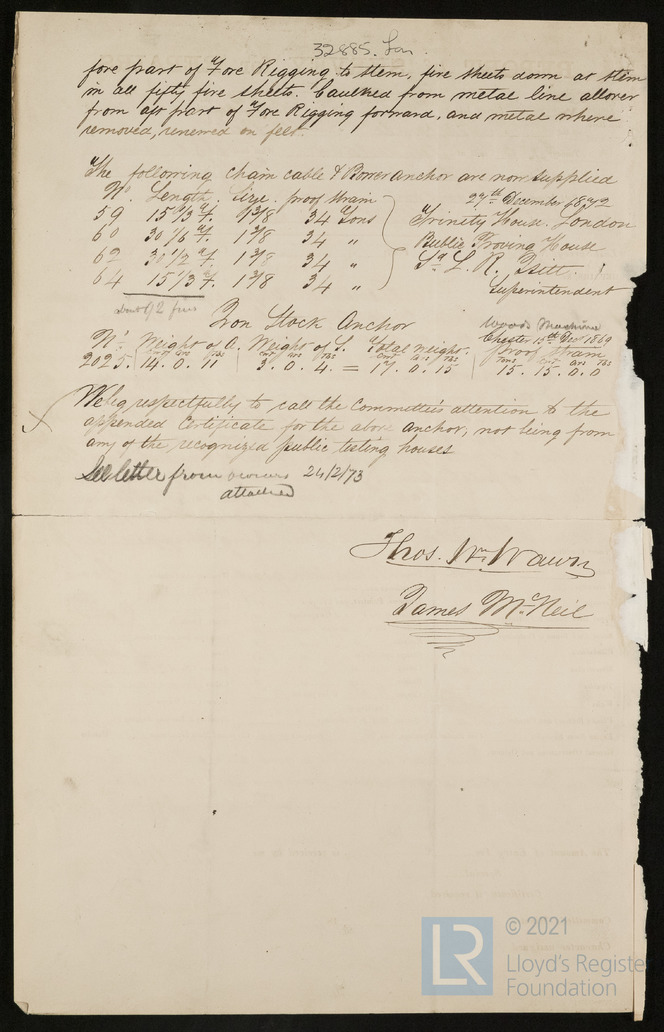 32885. Lon.
fore part of Fore Rigging to stem, five sheets down at stem
in all fifty five sheets. Caulked from metal line allover
from aft part of Fore Rigging forward, and metal where
removed, renewed on felt.
The following chain cable & Bower anchor are now supplied
No. Length. Size. proof strain
27th December 1872
59 15 1/3 f. 1 3/8 34 Tons
Trinity House. London
60 30 1/6 f. 1 3/8 34 "
Public Proving House
62 30 1/2 f. 1 3/8 34 "
Sd. L. R.
64 15 1/3 f. 1 3/8 34 "
Superintendent
about 92 fms
Iron Stock Anchor
Wood's Machine
Chester 15th Decr 1869
No. Weight of A. Weight of S. Total weight. proof strain
cwt qrs lbs cwt qrs lbs cwt qrs lbs Tons cwt qrs lbs
2025. 14. 0. 11 3. 0. 4. = 17. 0. 15 15. 15. 0. 0
We beg respectfully to call the Committee's attention to the
appended Certificate for the above anchor, not being from
any of the recognized public testing houses
See letter from owners 24/2/73
attached
Thos. Wm. Wawn
James McNeil
© 2021
LR
Lloyd's Register
Foundation